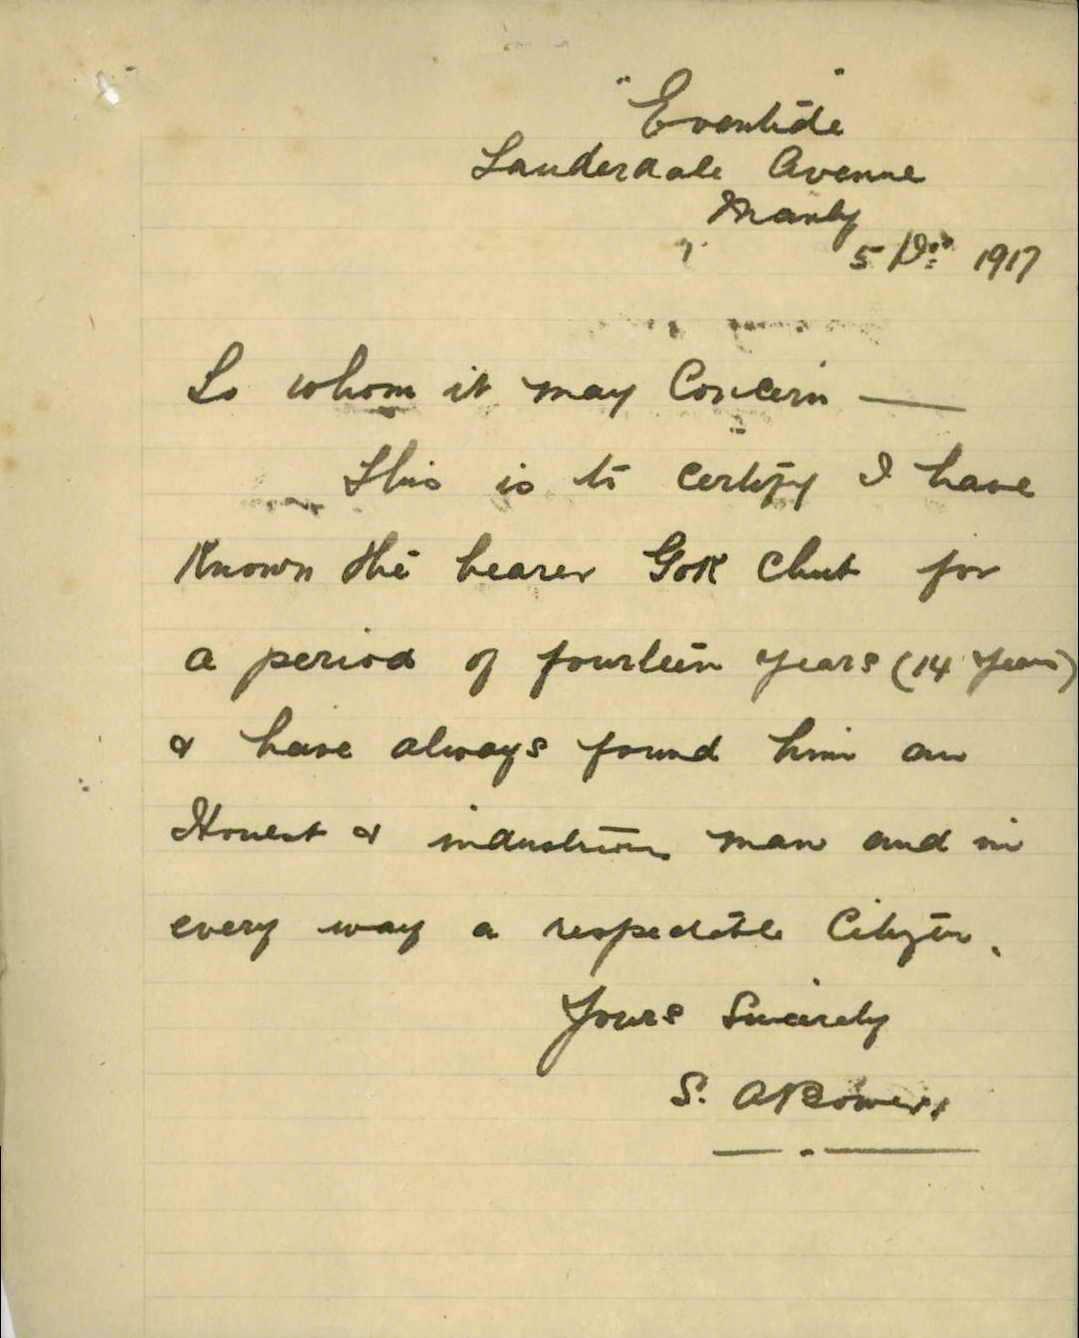 "Eventide"
Lauderdale Avenue
Manly
5 1917
To whom it may Concern —
This is to certify I have
Known the bearer Gok Chut for
a period of fourteen years (14 years)
& have always found him an
Honest & industrious man and in
every way a respectable Citizen.
Yours Sincerely
S. A Bowers